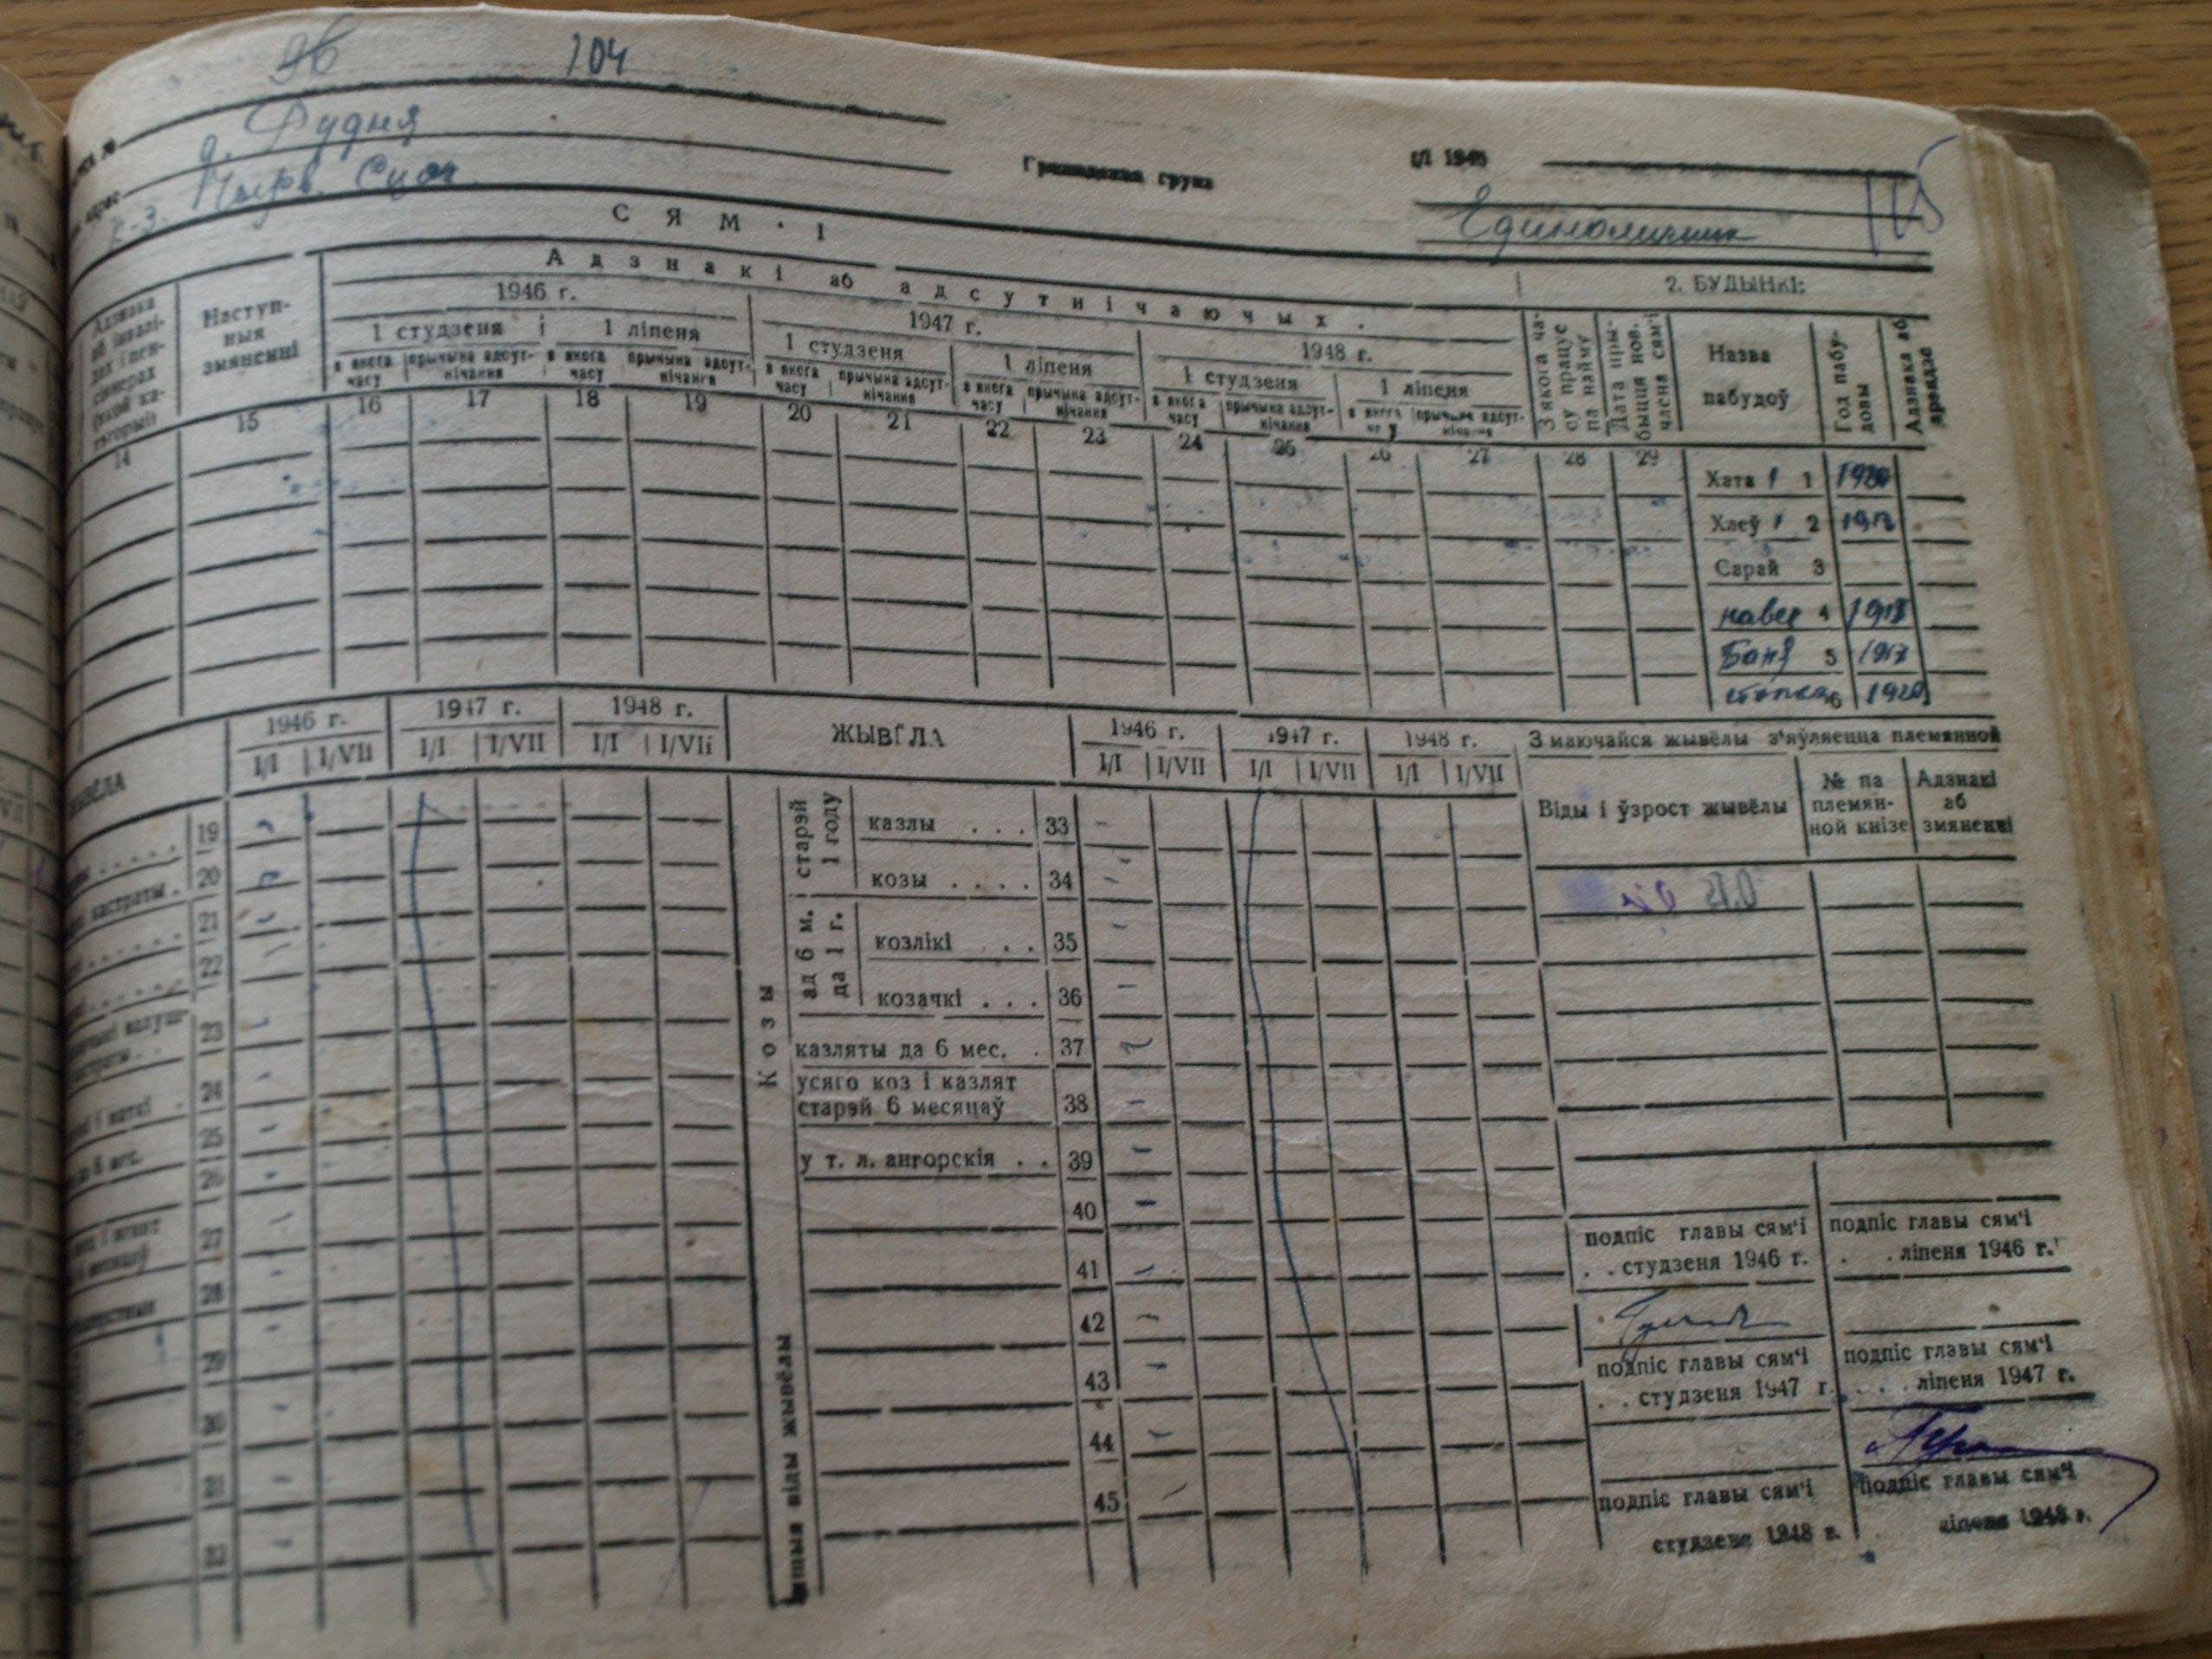 96 104
д. Рудня
адрас
к-з. Чырв.
Грамадская група
I/I 1946
Единоличник
105
С Я М ' І
Адзнакі аб адсутнічаючых.
2. БУДЫНКІ:
Адзнака аб інвалідах і пенсіянерах (якой катэгорыі)
Наступныя змяненні
1946 г. 1947 г. 1948 г.
1 студзеня 1 ліпеня 1 студзеня 1 ліпеня 1 студзеня 1 ліпеня
з якога часу прычына адсутнічання з якога часу прычына адсутнічання з якога часу прычына адсутнічання з якога часу прычына адсутнічання з якога часу прычына адсутнічання з якога часу прычына адсутнічання
З якога часу працуе па найму
Дата прыбыцця нов. члена сям'і
Назва пабудоў
Год пабудовы
Адзнака аб арэндзе
14 15 16 17 18 19 20 21 22 23 24 25 26 27 28 29
Хата 1 1
Хлеў 1 2
Сарай 3
навес 4
Баня 5
6
1946 г. 1947 г. 1948 г. ЖЫВЁЛА 1946 г. 1947 г. 1948 г.
I/I I/VII I/I I/VII I/I I/VII I/I I/VII I/I I/VII I/I I/VII
З маючайся жывёлы з'яўляецца племянной
Віды і ўзрост жывёлы
№ па племянной кнізе
Адзнакі аб змяненні
19
кастраты . 20
21
22
23
24
25
26
27
28
29
30
31
32
Козы
старэй 1 году
казлы . . . 33
козы . . . . 34
ад 6 м. да 1 г.
козлікі . . 35
козачкі . . . 36
казляты да 6 мес. . 37
усяго коз і казлят
старэй 6 месяцаў 38
у т. л. ангорскія . . 39
віды жывёлы
40
41
42
43
44
45
подпіс главы сям'і подпіс главы сям'і
. . студзеня 1946 г. . . ліпеня 1946 г.
подпіс главы сям'і подпіс главы сям'і
. . студзеня 1947 г. . . . ліпеня 1947 г.
подпіс главы сям'і подпіс главы сям'і
студзеня 1948 г. ліпеня 1948 г.